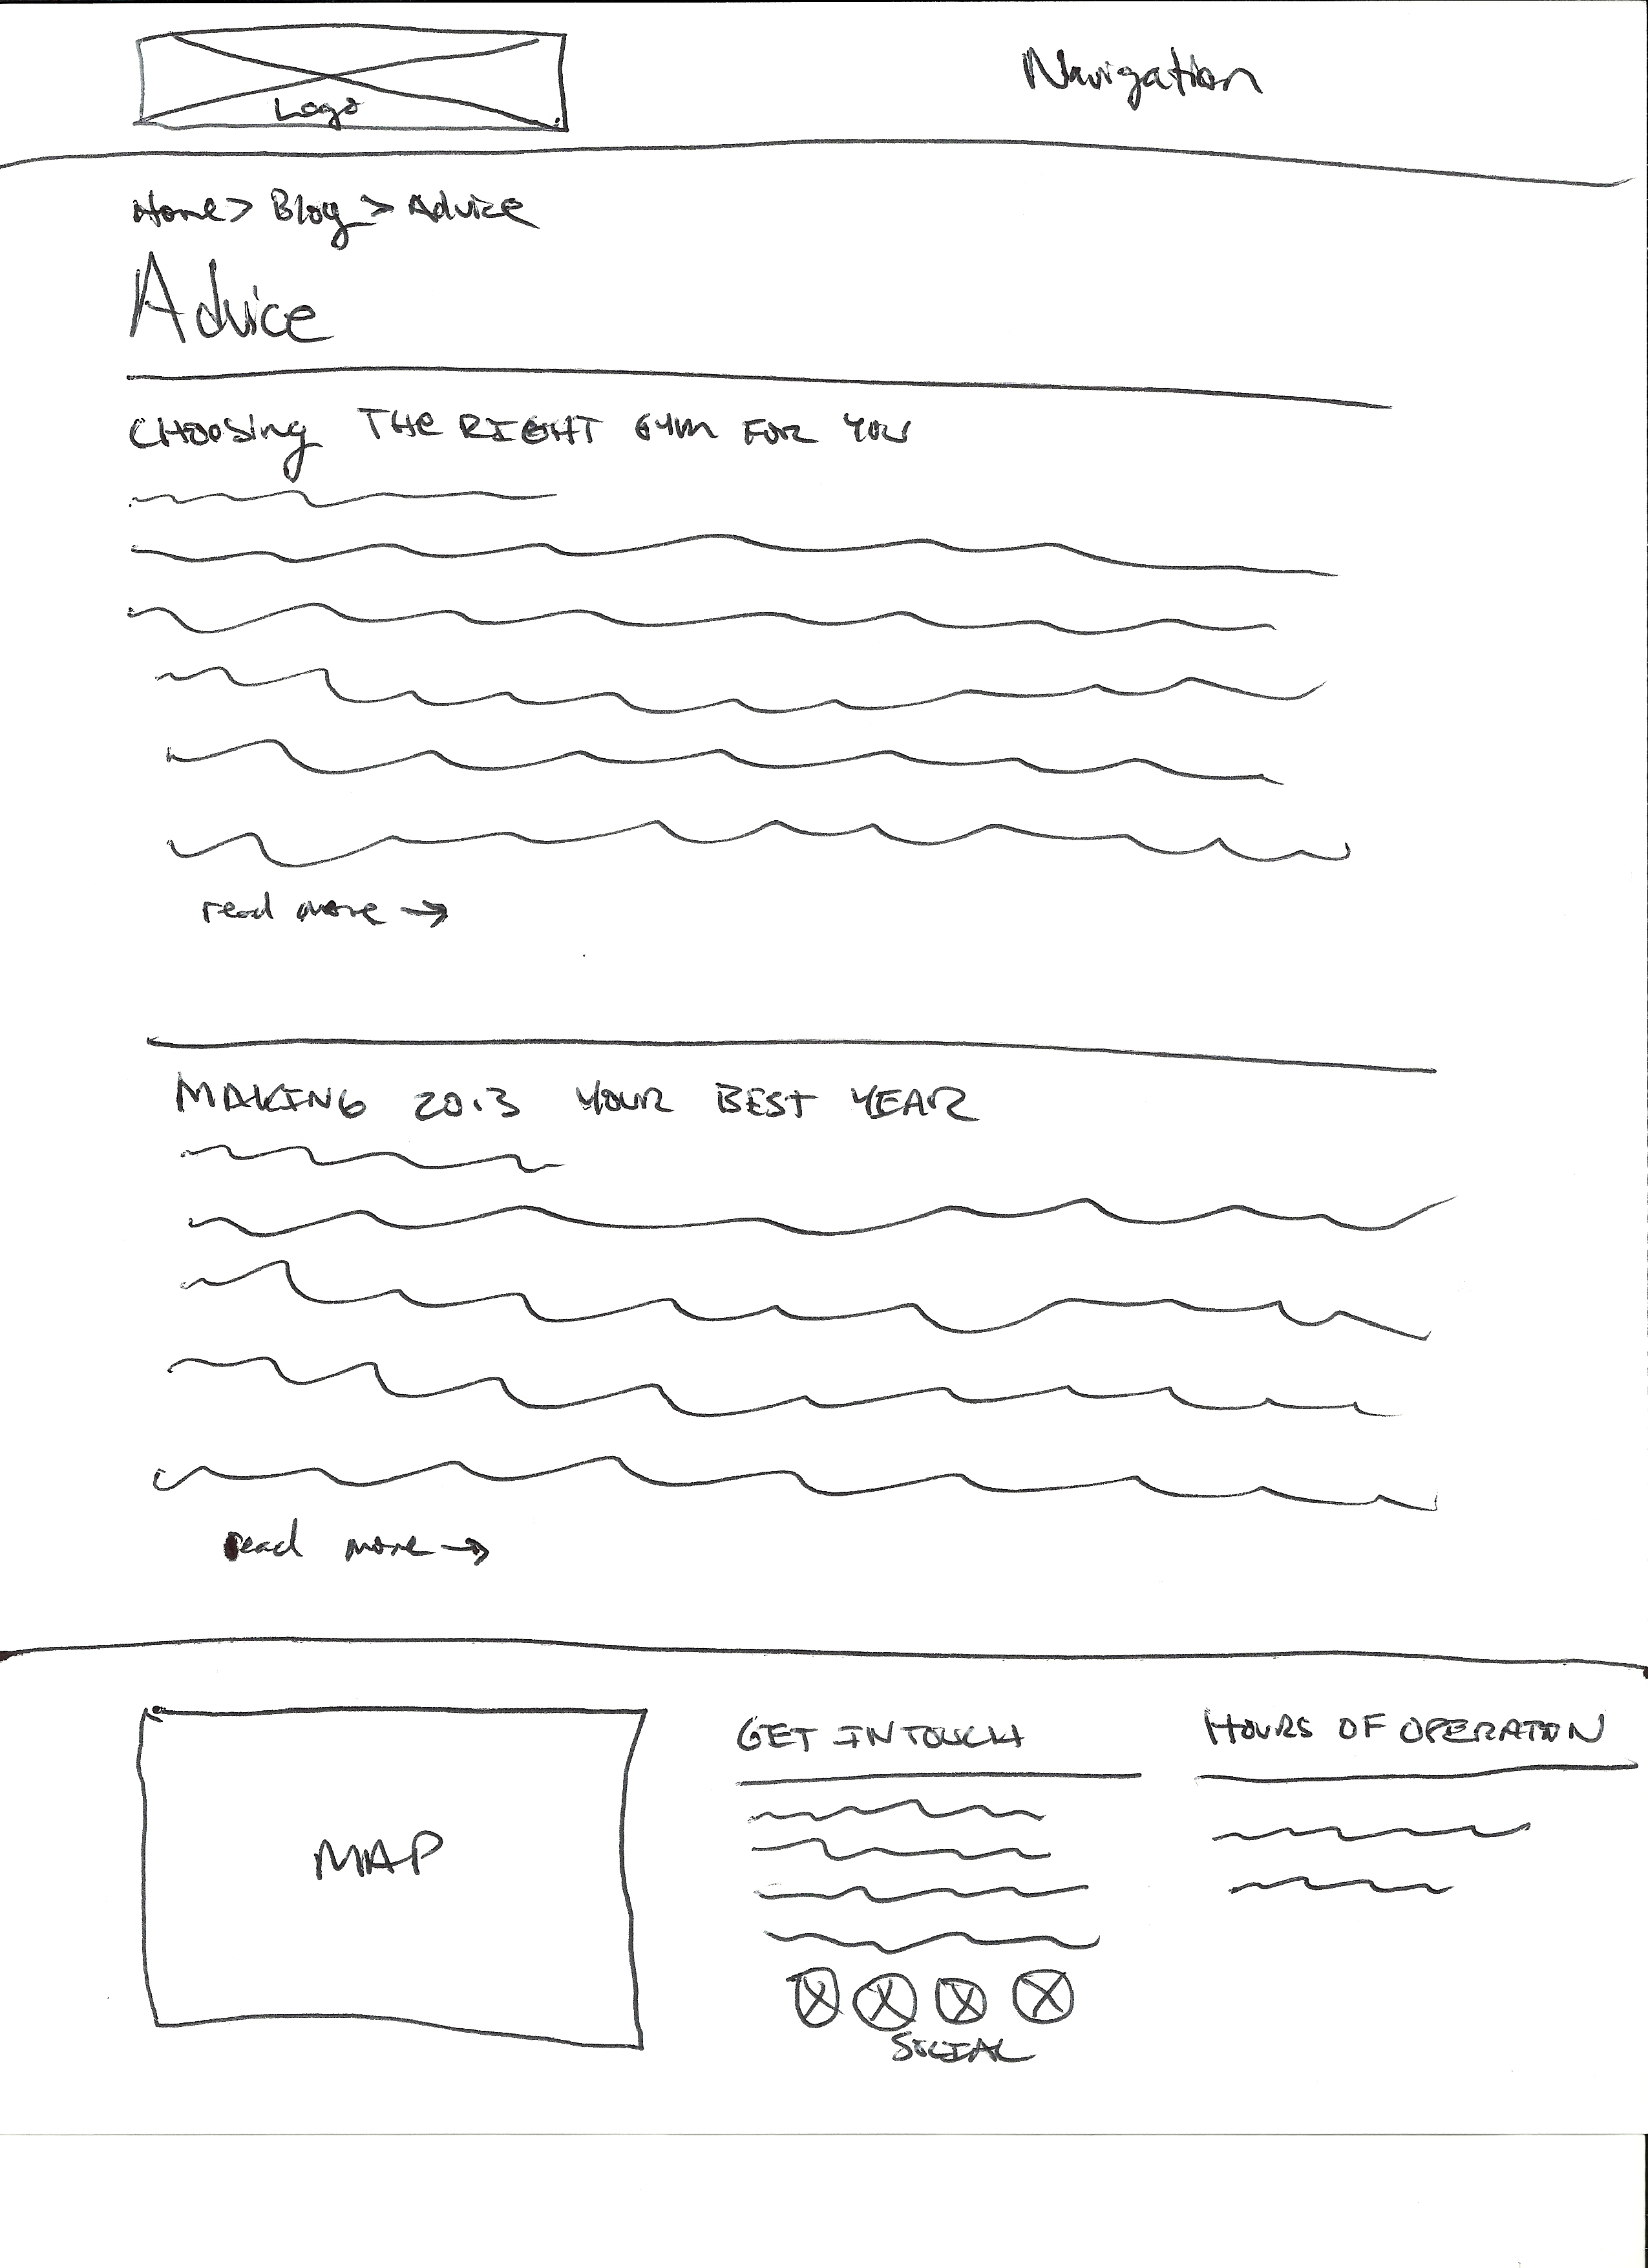 Logo
Navigation
Home > Blog > Advice
Advice
CHOOSing THE RIGHT GYM FOR YOU
read more →
MAKING 2013 YOUR BEST YEAR
read more →
MAP
GET IN TOUCH
HOURS OF OPERATION
SOCIAL